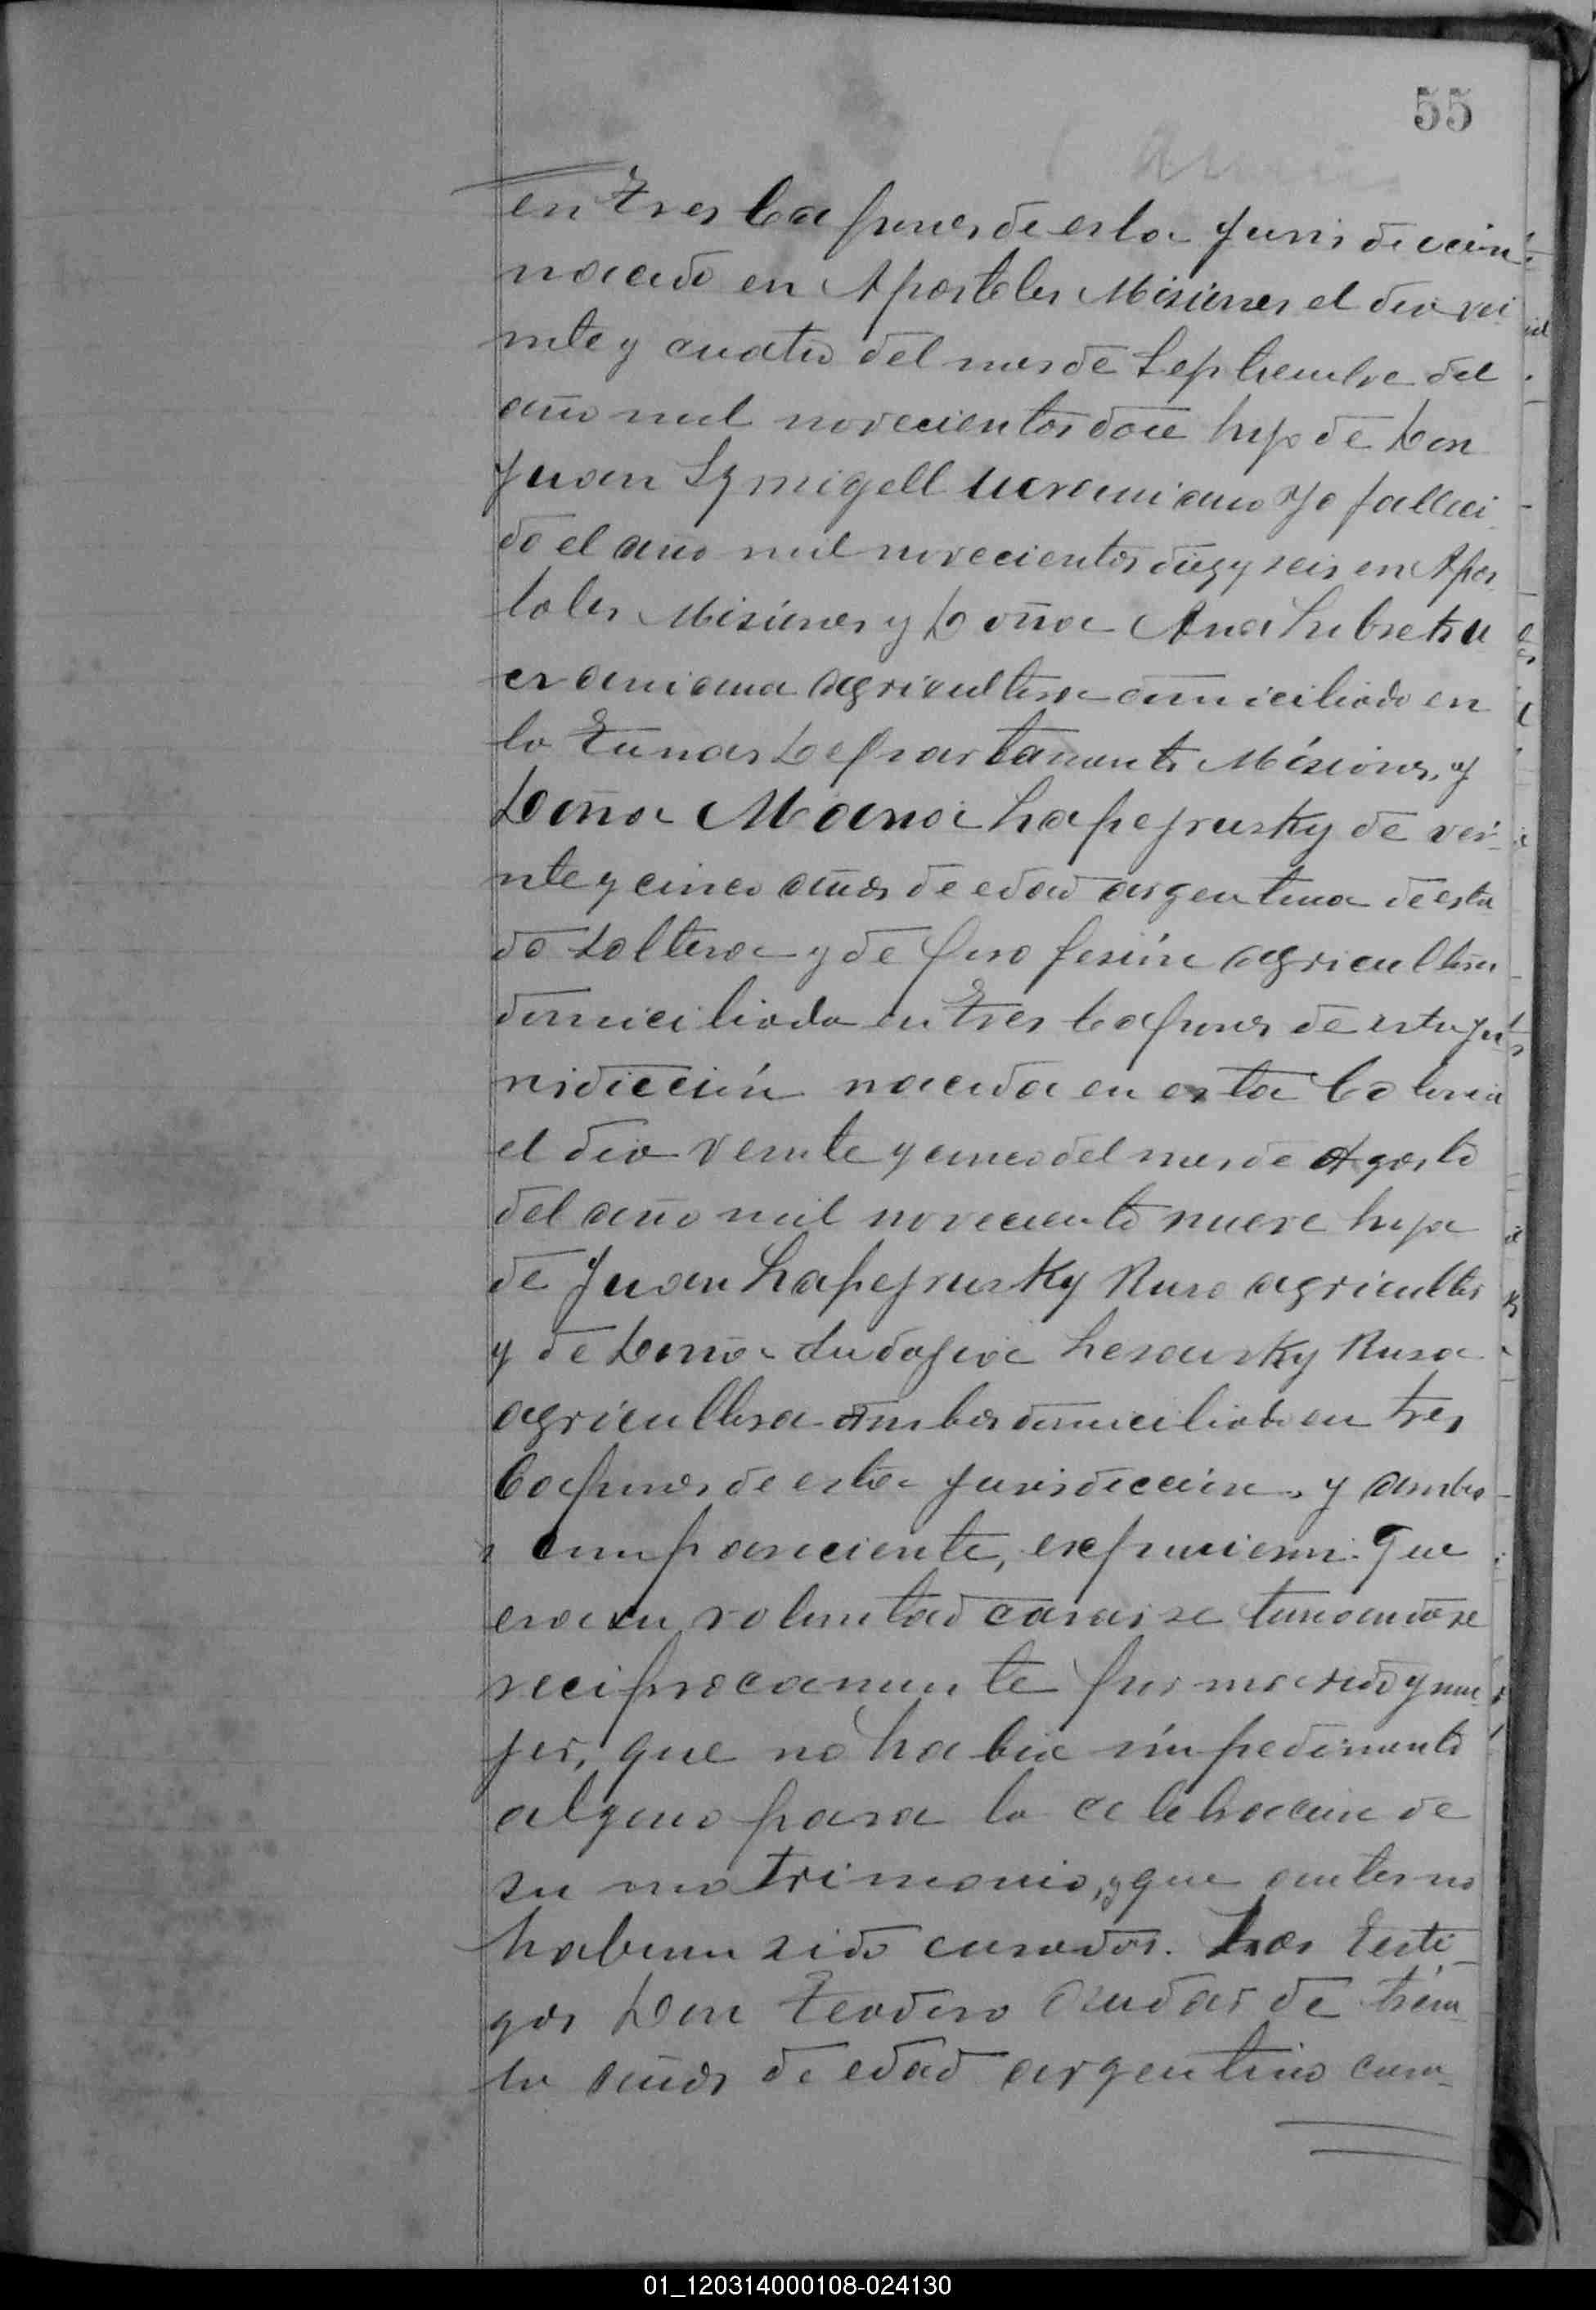 55
en Tres Capones de esta Jurisdiccion
nacido en Apostoles Misiones el dia vei
nte y cuatro del mes de Septiembre del
año mil novecientos doce hijo de Don
Juan Szmigell ucraniano ya falleci
do el año mil novecientos diez y seis en Apos
toles Misiones y Doña Ana hubretz u
craniana agricultora domiciliada en
la Tunas Departamento Misiones, y
Doña Maria hapejrusky de vei
nte y cinco años de edad argentina de esta
do soltera y de profesión agricultora
domiciliada en Tres Capones de esta ju
risdicción nacida en esta Colonia
el dia veinte y cinco del mes de Agosto
del año mil noveciento nueve hija
de Juan hapejrusky Ruso agricultor
y de Doña hesausky Rusa
agricultora ambos domiciliado en tres
Capones de esta jurisdiccion, y ambo
s compareciente, expusieron: que
era su voluntad casarse tomandose
reciprocamente por marido y mu
jer, que no habia impedimento
alguno para la celebracion de
su matrimonio, y que antes no
habian sido casados. Los testi
gos Don Teodoro de trein
ta años de edad argentino casa
01_120314000108-024130